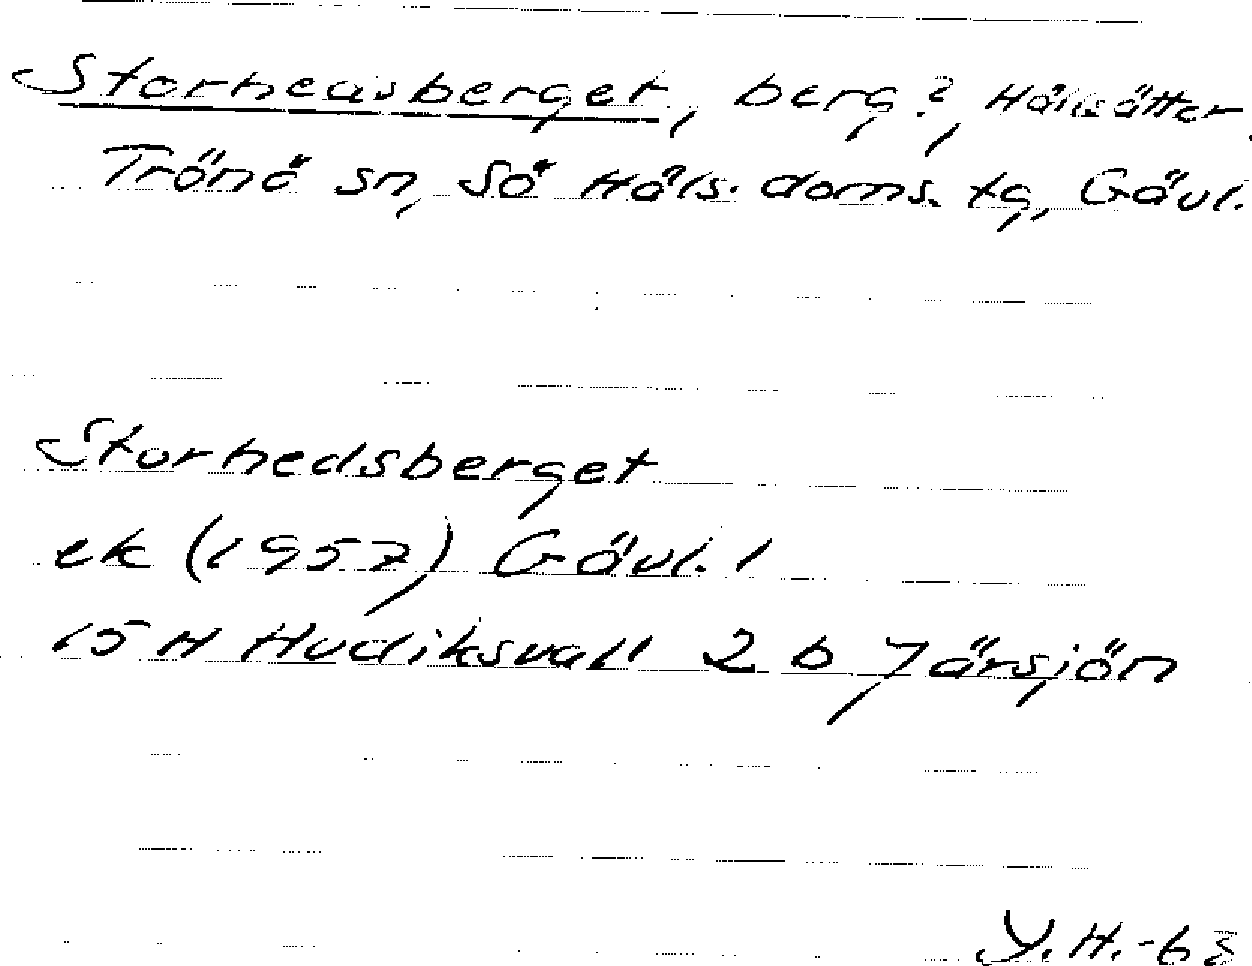 Storhedsberget, berg?, Hällsätter,
Trönö sn, Sö Häls. doms. tg, Gävl.
Storhedsberget
ek (1957) Gävl. l
15 H Hudiksvall 2 b Järsjön
Y.H.-63